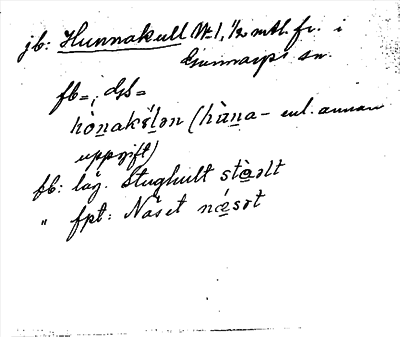 jb: Hunnakull Nr 1, 1/2 mtl. fr. i
Gunnarps sn.
fb=, djb=
hò̱nakə́ḻən (hù̱na- enl. annan
uppgift)
fb: läg. Stughult stə̱lt
" fpt: Näset nǽ̱sət